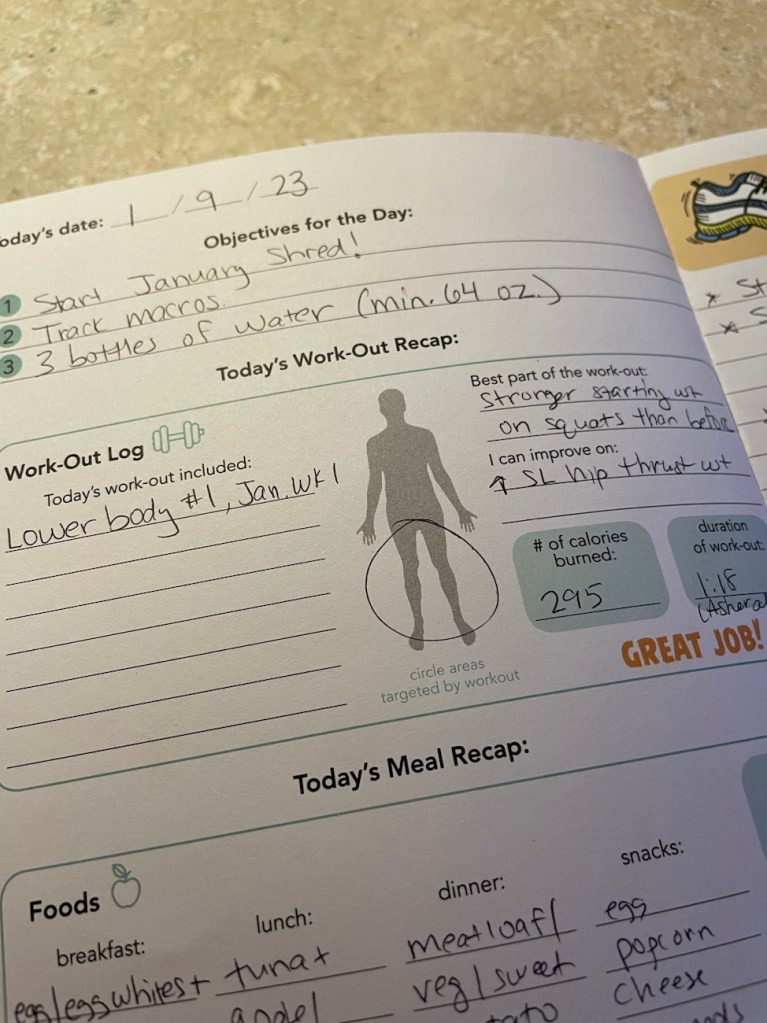 oday's date: 1 / 9 / 23
Objectives for the Day:
1 Start January Shred!
2 Track macros.
3 3 bottles of water (min. 64 oz.)
Today's Work-Out Recap:
Work-Out Log
Today's work-out included:
Lower body #1, Jan. WK 1
Best part of the work-out:
Stronger starting wt
on squats than before
I can improve on:
↑ SL hip thrust wt
# of calories
burned:
295
duration
of work-out:
1:18
(Ashera
GREAT JOB!
circle areas
targeted by workout
* St
* S
Today's Meal Recap:
Foods
breakfast:
egg/egg whites +
lunch:
tuna +
dinner:
meatloaf/
veg/sweet
snacks:
egg
popcorn
cheese